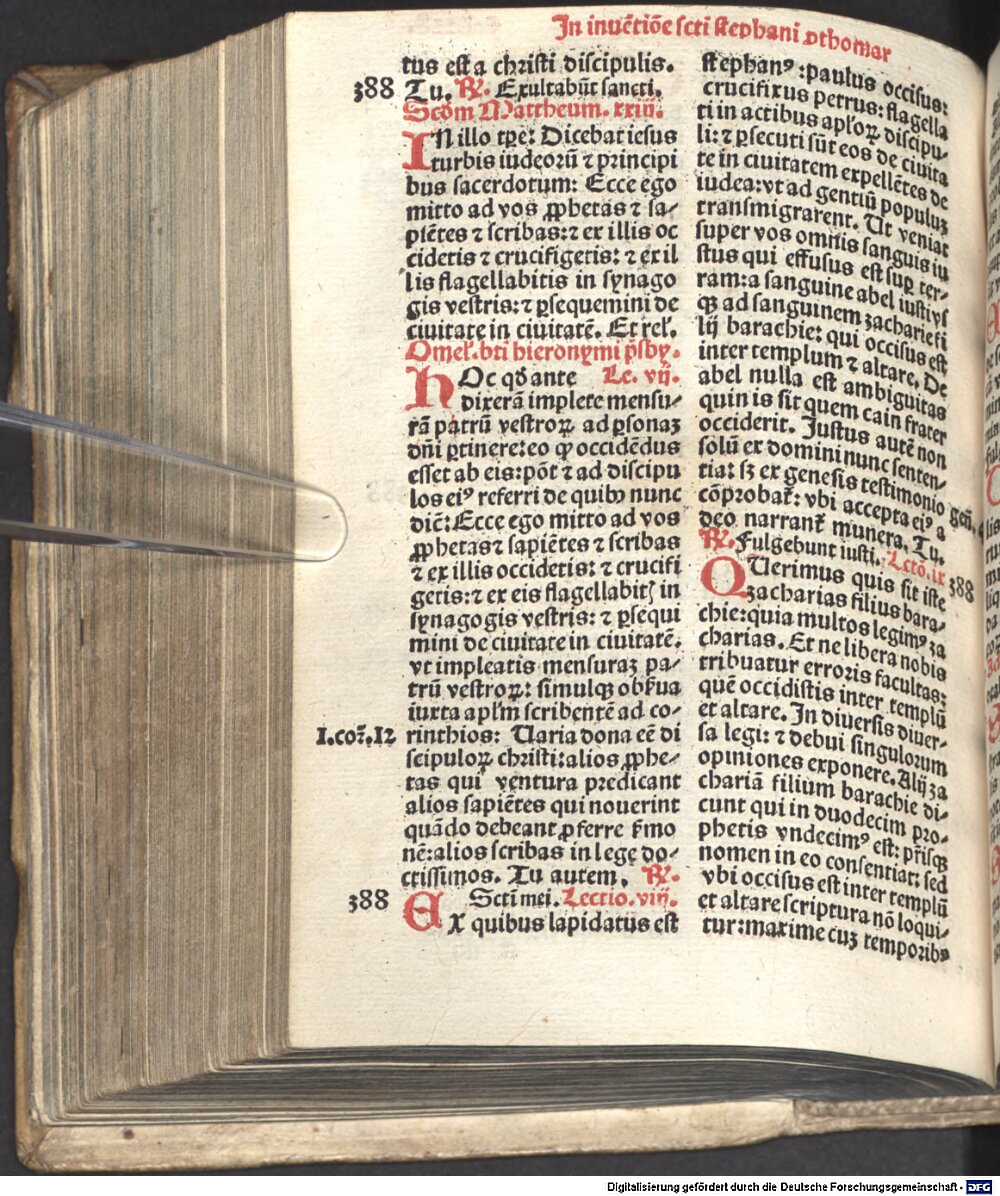 In inuētiōe scti stephani ꝓthomar
tus est a christi discipulis.
388 Tu. ℟. Exultabūt sancti.
Scd̄m Mattheum. xxiij.
IN illo tꝑe: Dicebat iesus
turbis iudeorū ⁊ principi
bus sacerdotum: Ecce ego
mitto ad vos ꝓphetas ⁊ sa⸗
piētes ⁊ scribas: ⁊ ex illis oc
cidetis ⁊ crucifigetis: ⁊ ex il
lis flagellabitis in synago
gis vestris: ⁊ ꝑsequemini de
ciuitate in ciuitatē. Et rel̄.
Omel̄. bti hieronymi p̄sby.
HOc qd̄ ante Le. vij.
dixerā implete mensu⸗
rā patrū vestroꝝ ad ꝑsonaꝫ
dn̄i ꝑtinere: eo ꝙ occidēdus
esset ab eis: pōt ⁊ ad discipu
los eiꝰ referri de quibꝰ nunc
dič: Ecce ego mitto ad vos
ꝓphetas ⁊ sapiētes ⁊ scribas
⁊ ex illis occidetis: ⁊ crucifi
getis: ⁊ ex eis flagellabitꝭ in
synagogis vestris: ⁊ ꝑsequi
mini de ciuitate in ciuitatē.
vt impleatis mensuraꝫ pa⸗
trū vestroꝝ: simulqꝫ obẜua
iuxta apl̄m scribentē ad co⸗
I.cor̄.12 rinthios: Uaria dona eē di
scipuloꝝ christi: alios ꝓphe⸗
tas qui ventura predicant
alios sapiētes qui nouerint
quādo debeant ꝓferre ẜmo
nē: alios scribas in lege do⸗
ctissimos. Tu autem. ℟.
388 Sctī mei. Lectio. viij.
EX quibus lapidatus est
stephanꝰ: paulus occisus:
crucifixus petrus: flagella
ti in actibus apl̄oꝝ discipu⸗
li: ⁊ ꝑsecuti sūt eos de ciuita
te in ciuitatem expellētes de
iudea: vt ad gentiū populuꝫ
transmigrarent. Ut veniat
super vos omnis sanguis iu
stus qui effusus est suꝑ ter⸗
ram: a sanguine abel iusti vs
qꝫ ad sanguinem zacharie fi
lij barachie: qui occisus est
inter templum ⁊ altare. De
abel nulla est ambiguitas
quin is sit quem cain frater
occiderit. Justus autē non
solū ex domini nunc senten⸗
tia: sꝫ ex genesis testimonio
cōprobat̄: vbi accepta eiꝰ a gen̄. 4
deo narrant̄ munera. Tu.
℟. Fulgebunt iusti. Lctō. ix 388
QUerimus quis sit iste
zacharias filius bara⸗
chie: quia multos legimꝰ za
charias. Et ne libera nobis
tribuatur erroris facultas:
quē occidistis inter templū
et altare. In diuersis diuer⸗
sa legi: ⁊ debui singulorum
opiniones exponere. Alij za
chariā filium barachie di⸗
cunt qui in duodecim pro⸗
phetis vndecimꝰ est: pr̄isqꝫ
nomen in eo consentiat: sed
vbi occisus est inter templū
et altare scriptura nō loqui⸗
tur: maxime cuꝫ temporibꝰ
Digitalisierung gefördert durch die Deutsche Forschungsgemeinschaft - DFG